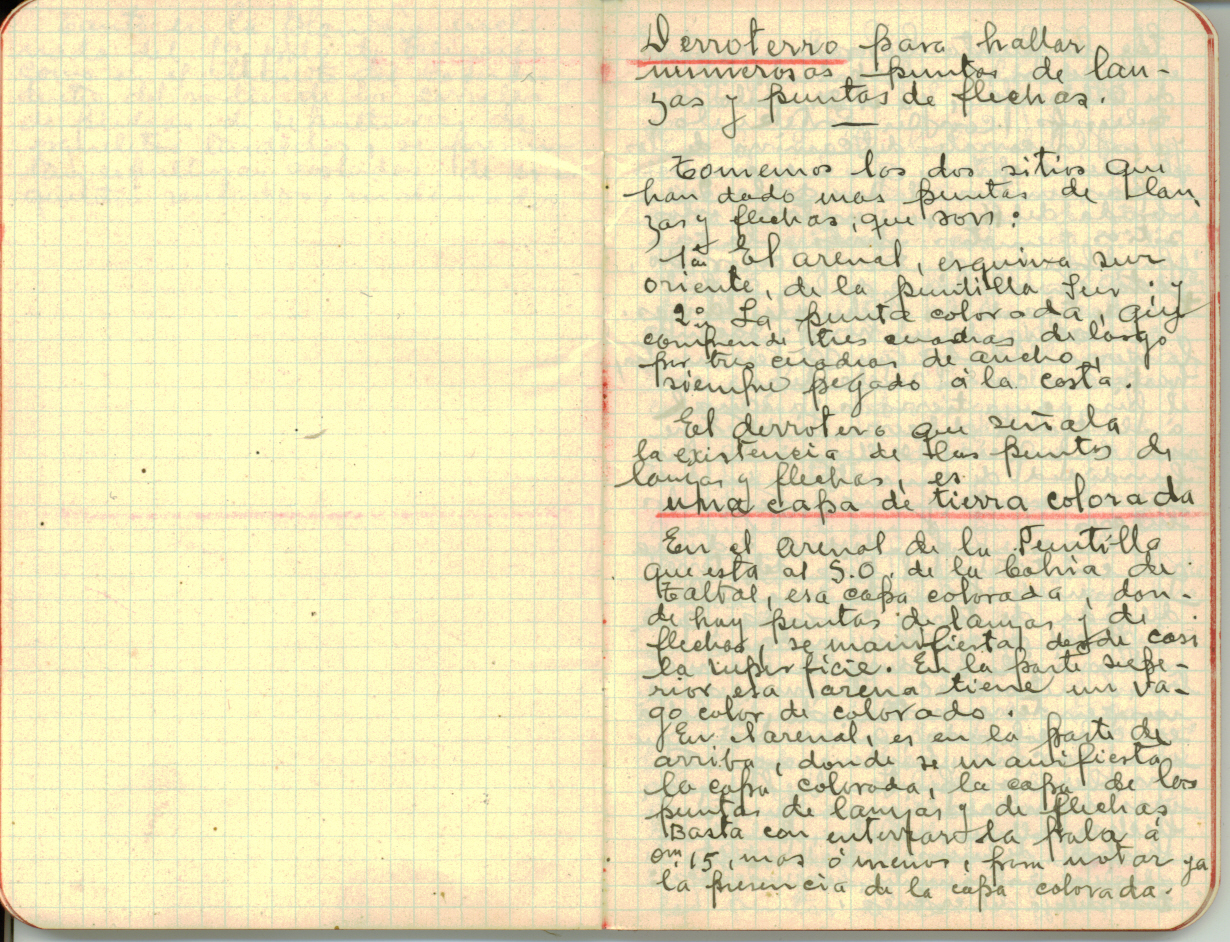 Derroterro para hallar
numerosas puntas de lan-
zas y puntas de flechas.
Tomemos los dos sitios que
han dado mas puntas de lan
zas y flechas, que son:
1º El arenal, esquina sur
oriente, de la puntilla Sur. y
2º La punta colorada, que
comprende tres cuadras de largo
por tres cuadras de ancho,
siempre pegado á la costa.
El derrotero que señala
la existencia de las puntas de
lanzas y flechas, es
una capa de tierra colorada
En el arenal de la Puntilla
que esta al S.O. de la bahia de
Taltal, esa capa colorada, don-
de hay puntas de lanzas y de
flechas, se manifiesta desde casi
la superficie. En la parte supe-
rior esa arena tiene un va-
go color de colorado.
En el arenal, es en la parte de
arriba, donde se manifiesta
la capa colorada, la capa de las
puntas de lanzas y de flechas
Basta con enterrar la pala á
0m15, mas ó menos, para notar ya
la presencia de la capa colorada.